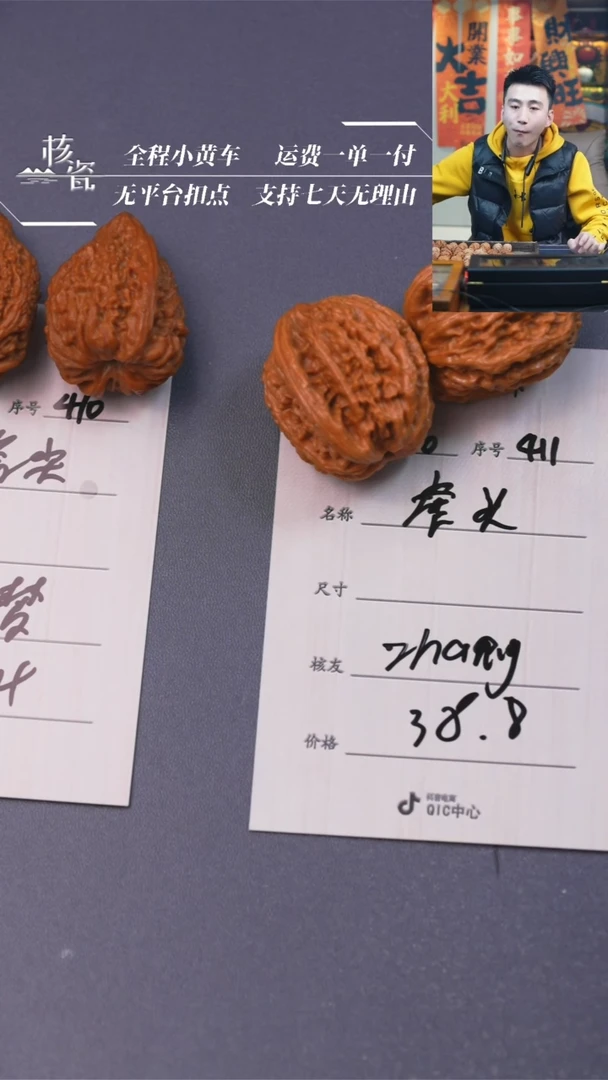 開業
大吉
大利
財興旺
核瓷
全程小黄车 运费一单一付
无平台扣点 支持七天无理由
序号 410
尖
梦
序号 411
名称
尺寸
核友 zhang
价格 38.8
抖音电商
QIC中心